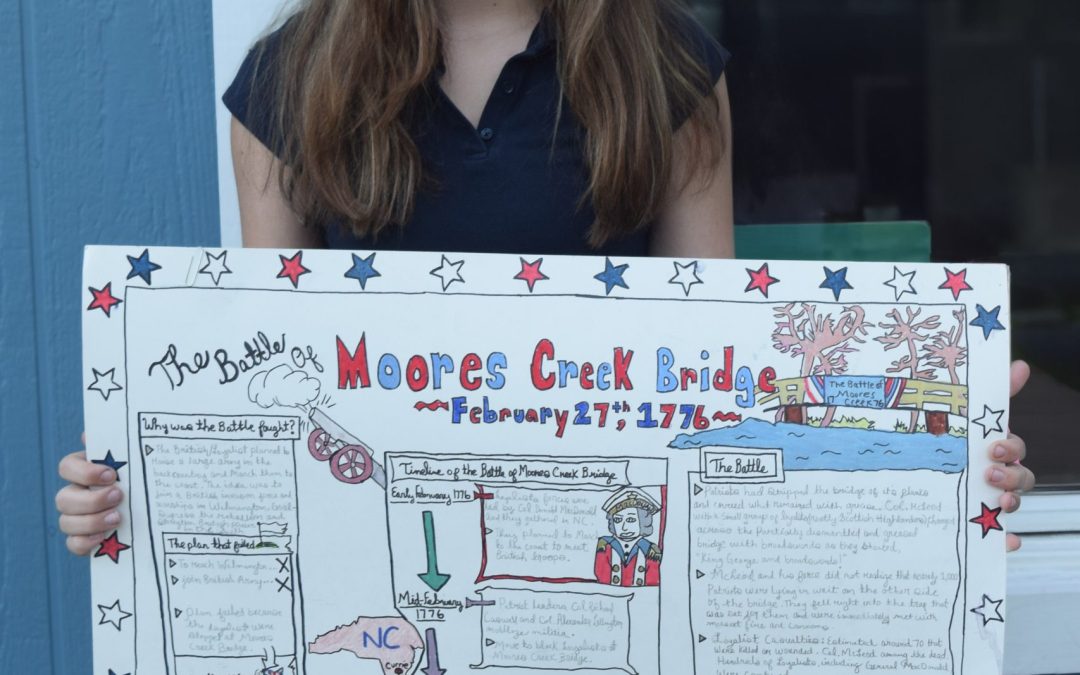 The Battle Of
Moores Creek Bridge
February 27th, 1776
The Battle of
Moores
Creek 76
Why was the Battle fought?
The British/Loyalist planned to
raise a large army in the
backcountry and March them to
the coast. The idea was to
join a British invasion force and
warships in Wilmington. Goal
The plan that failed
To reach Wilmington
Join British Army
Plan failed because
the loyalist were
stopped at Moores
Creek Bridge.
Timeline of the Battle of Moores Creek Bridge
Early February 1776
Loyalists forces were
led by Col. Donald MacDonald
and they gathered in N.C.
They planned to March
to the coast to meet
British troops.
Mid-February
1776
Patriot Leaders Col. Richard
Caswell and Col. Alexander Lillington
mobilize militia.
Move to block Loyalists at
Moores Creek Bridge.
NC
The Battle
Patriots had stripped the bridge of its planks
and covered what remained with grease. Col. McLeod
with a small group of loyalist (mostly Scottish Highlanders) charged
across the partically dismantled and greased
bridge with broadswords as they shouted,
"King George and broadswords!"
McLeod and his force did not realize that nearly 1,000
Patriots were lying in wait on the other side
of the bridge. They fell right into the trap that
was set for them and were immediately met with
musket fire and cannons.
Loyalist Casualties: Estimated around 70 that
were killed or wounded. Col. McLeod among the dead
Hundreds of Loyalists, including General MacDonald
were